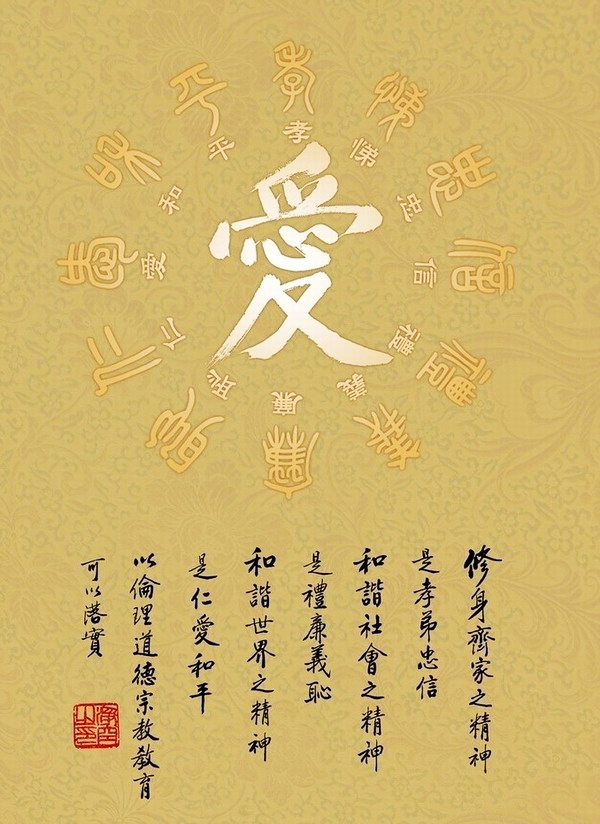 愛
孝
悌
忠
信
禮
義
廉
恥
仁
愛
和
平
孝
悌
忠
信
禮
義
廉
恥
仁
愛
和
平
修身齊家之精神
是孝弟忠信
和諧社會之精神
是禮廉義恥
和諧世界之精神
是仁愛和平
以倫理道德宗教教育
可以落實